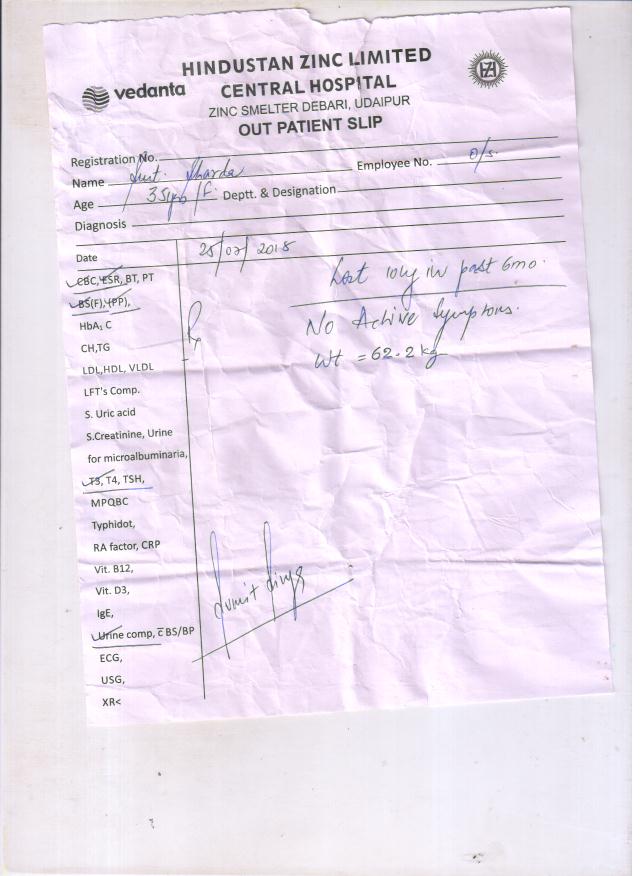 HINDUSTAN ZINC LIMITED
vedanta
CENTRAL HOSPITAL
ZINC SMELTER DEBARI, UDAIPUR
OUT PATIENT SLIP
Registration No.
Name Smt. Sharda Employee No. O/S.
Age 35yrs/F. Deptt. & Designation
Diagnosis
Date 25/07/2015
CBC, ESR, BT, PT
Lost 10kg in past 6mo.
BS(F), (PP),
HbA₁ C
No Active Symptoms.
CH,TG
Wt = 62.2 kg
LDL,HDL, VLDL
LFT's Comp.
S. Uric acid
S.Creatinine, Urine
for microalbuminaria,
T3, T4, TSH,
MPQBC
Typhidot,
RA factor, CRP
Vit. B12,
Vit. D3,
Sumit Singh
IgE,
Urine comp, c̅ BS/BP
ECG,
USG,
XR<